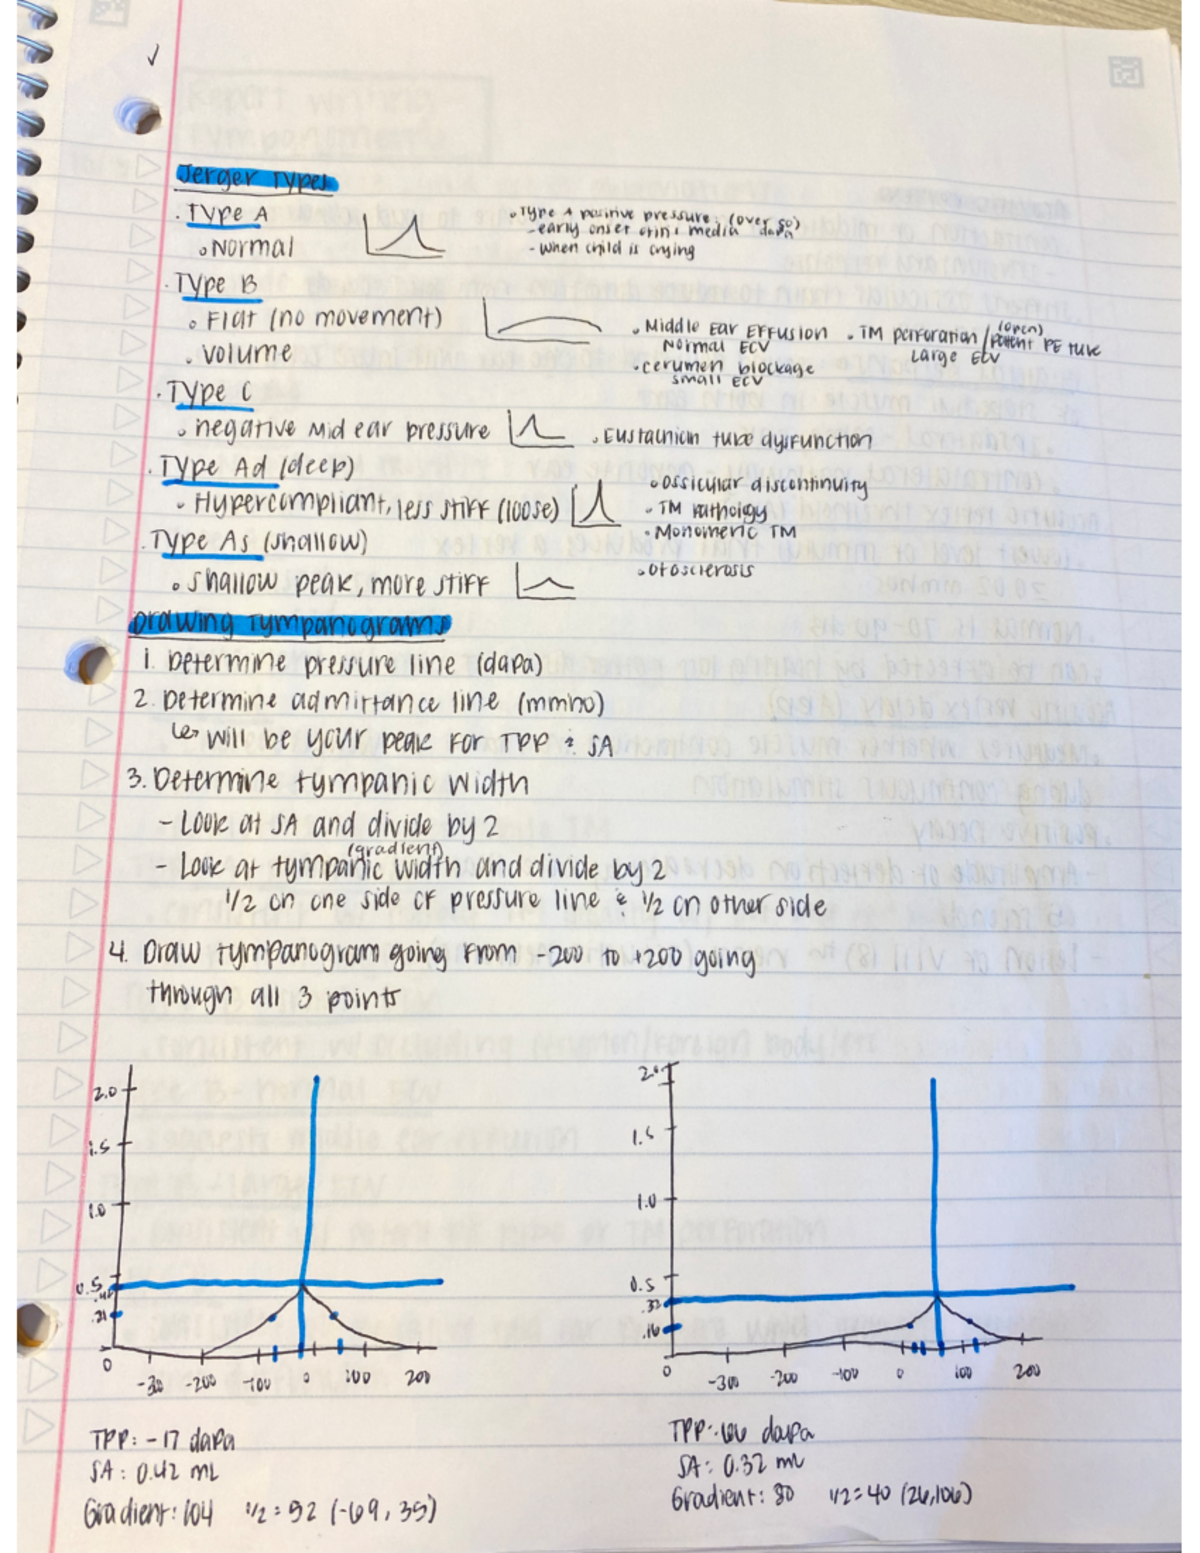 Jerger Types
· Type A
◦ Normal
◦ Type A positive pressure: (over 50) dapa
- early onset otini media
- when child is crying
· Type B
◦ Flat (no movement)
◦ volume
• Middle Ear Effusion
Normal ECV
• cerumen blockage
small ECV
• TM perforation / (open) Patent PE tube
Large ECV
· Type C
◦ negative Mid ear pressure
• Eustachian tube dysfunction
· Type Ad (deep)
◦ Hypercompliant, less stiff (loose)
◦ ossicular discontinuity
• TM
• Monomeric TM
· Type As (shallow)
◦ shallow peak, more stiff
• otosclerosis
Drawing Tympanograms
1. Determine pressure line (dapa)
2. Determine admittance line (mmho)
↳ will be your peak for TPP & SA
3. Determine tympanic width
- Look at SA and divide by 2
(gradient)
- Look at tympanic width and divide by 2
1/2 on one side of pressure line & 1/2 on other side
4. Draw tympanogram going from -200 to +200 going
through all 3 points
2.0
1.5
1.0
0.5
.42
.21
0
-300 -200 -100 0 100 200
TPP: -17 dapa
SA: 0.42 mL
Gradient: 104 1/2 = 52 (-69, 35)
2.0
1.5
1.0
0.5
.32
.16
0
-300 -200 -100 0 100 200
TPP: 66 dapa
SA: 0.32 mL
Gradient: 80 1/2 = 40 (26, 106)